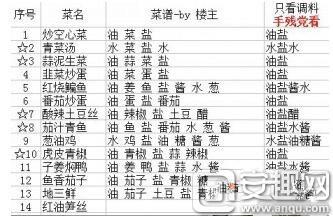 序号 菜名 菜谱-by 楼主 只看调料
手残党看
1 炒空心菜 油 菜 盐 油盐
☆2 青菜汤 水 菜 盐 水 水盐水
☆3 蒜泥生菜 油 蒜 菜 盐 油盐
4 韭菜炒蛋 油 菜 蛋 盐 油盐
5 红烧鳊鱼 油 姜 鱼 盐 酱 水 葱 油盐酱水
6 番茄炒蛋 油 蛋 盐 番茄 油盐
☆7 酸辣土豆丝 油 辣椒 盐 土豆 醋 油盐醋
☆8 茄汁青鱼 油 鱼 盐 番茄 水 葱 酱 油盐水酱
9 葱油鸡 水 鸡 盐 油 糖 酱 葱 水盐油糖酱
☆10 虎皮青椒 油 青椒 盐 蒜 辣椒 油盐
11 子姜焖鸭 油 姜 鸭 盐 蒜 水 酱 油盐水酱
12 鱼香茄子 油 茄子 盐 青椒 糖
13 地三鲜 油 茄子 土豆 盐 青椒 酱
14 红油笋丝
安趣网
www.anqu.com